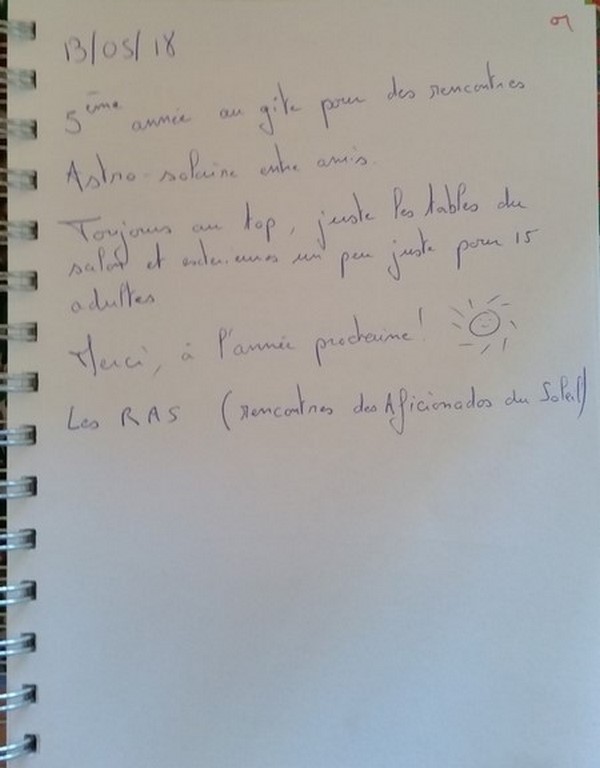 13/05/18
5ème année au gîte pour des rencontres
Astro-solaire entre amis.
Toujours au top, juste les tables du
salon et exterieures un peu juste pour 15
adultes
Merci, à l'année prochaine!
Les RAS (rencontres des Aficionados du Soleil)